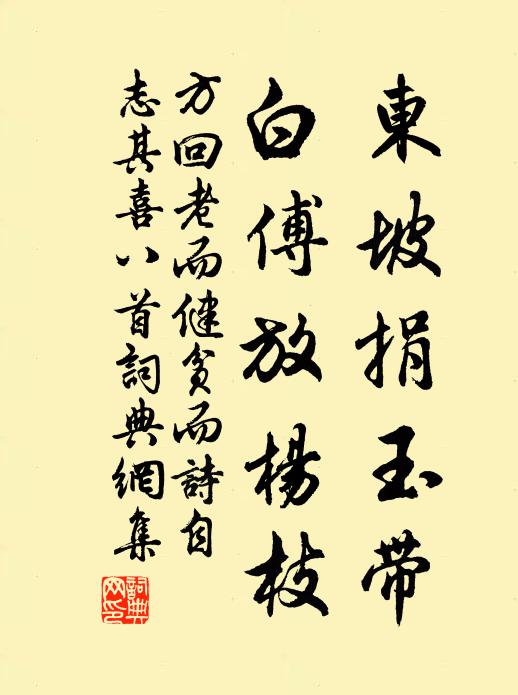 東坡捐玉带
白傅放楊枝
方回老而健貧而詩自
志其喜八首詞典網集
詞典網印